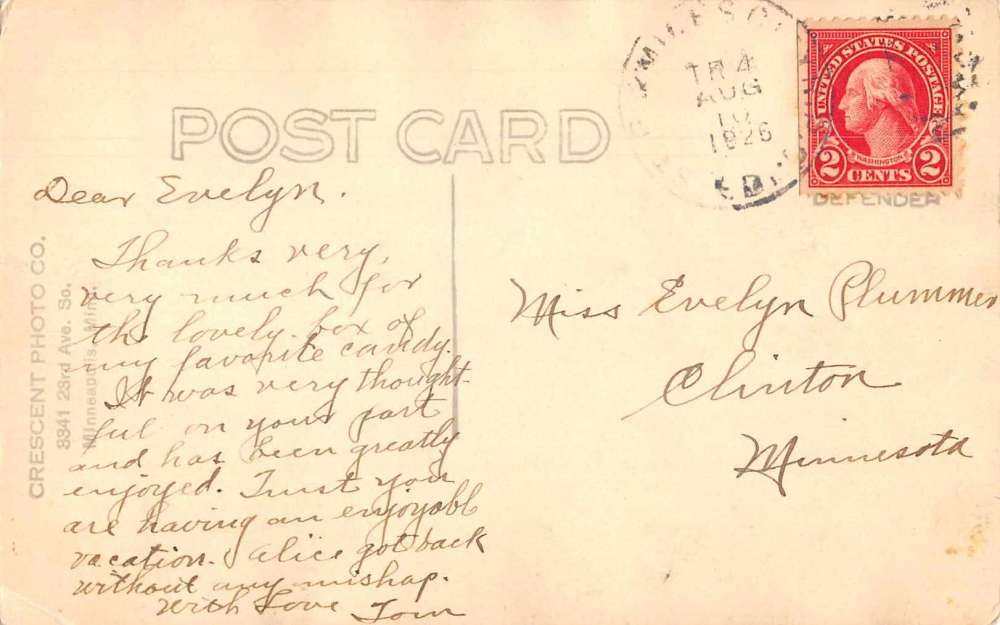 TR 4
AUG
10
1926
R.P.O.
UNITED STATES POSTAGE
WASHINGTON
2 CENTS 2
DEFENDER
POST CARD
Dear Evelyn.
Thanks very,
very much for
the lovely box of
my favorite candy.
It was very thought-
ful on your part
and has been greatly
enjoyed. Trust you
are having an enjoyabl
vacation. Alice got back
without any mishap.
With Love Tom
Miss Evelyn Plummer
Clinton
Minnesota
CRESCENT PHOTO CO.
3341 23rd Ave. So.
Minneapolis, Minn.